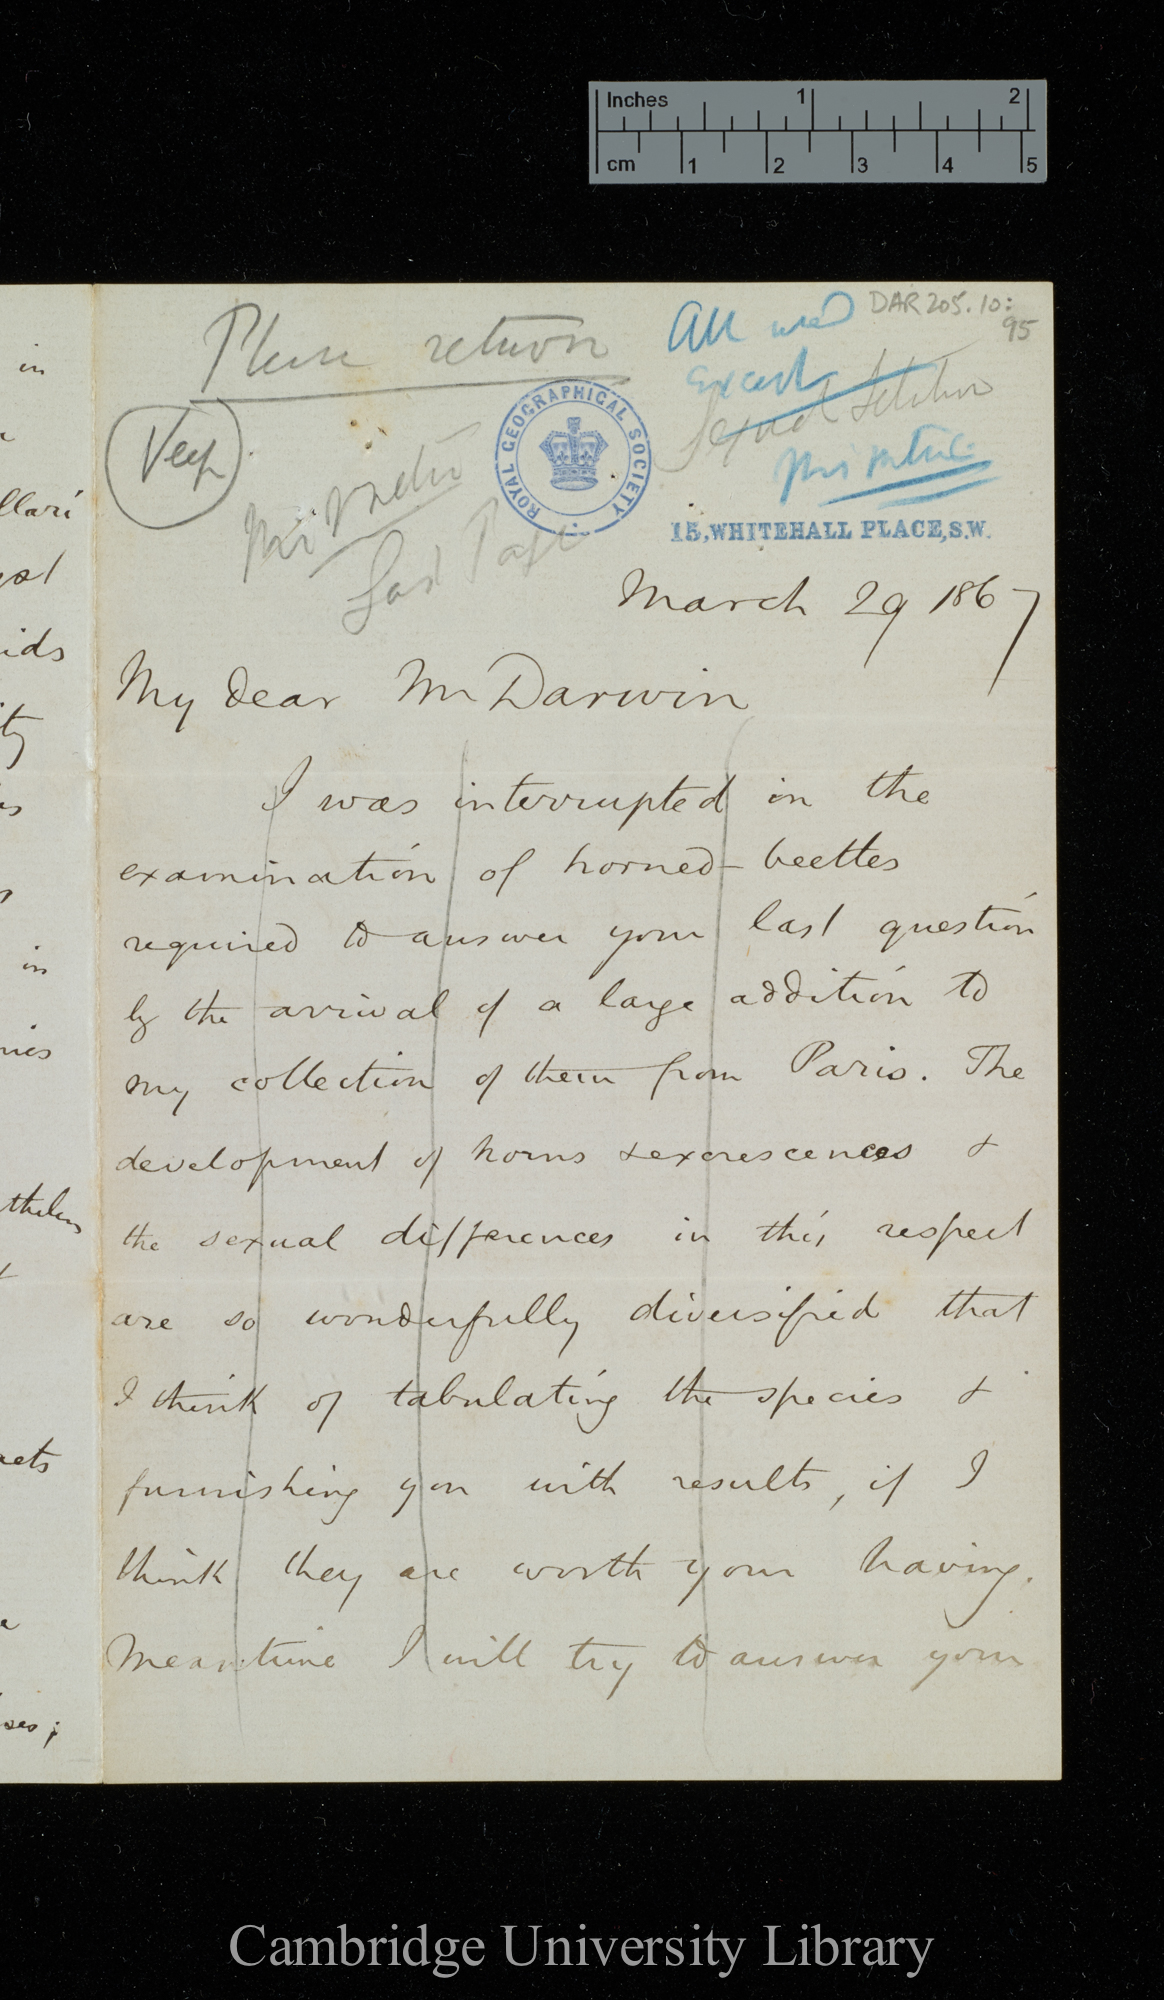 Inches 1 2
cm 1 2 3 4 5
DAR 205.10:
95
Please return
All used
except
Sexual Selection
Keep
ROYAL GEOGRAPHICAL SOCIETY
Last Page
15, WHITEHALL PLACE, S.W.
March 29 1867
My dear Mr Darwin
I was interrupted in the
examination of horned-beetles
required to answer your last question
by the arrival of a large addition to
my collection of them from Paris. The
development of horns & excrescences &
the sexual differences in this respect
are so wonderfully diversified that
I think of tabulating the species &
furnishing you with results, if I
think they are worth your having.
Meantime I will try to answer your
in
llari
ids
in
ses;
Cambridge University Library